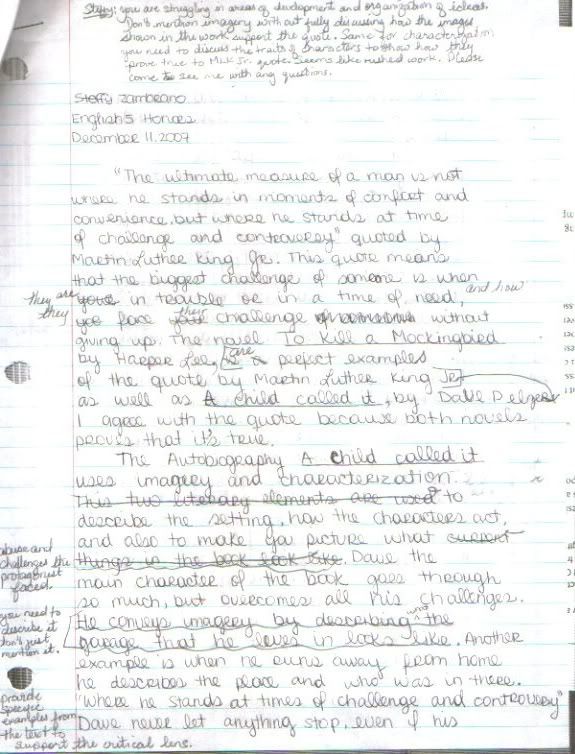 Steffy: you are struggling in areas of development and organization of ideas.
Don't mention imagery without fully discussing how the images
shown in the work support the quote. Same for characterization
you need to discuss the traits of characters to show how they
prove true to MLK Jr. quote. Seems like rushed work. Please
come to see me with any questions.
Steffy Zambrano
English 5 Honors
December 11, 2007
"The ultimate measure of a man is not
where he stands in moments of comfort and
convenience, but where he stands at time
of challenge and controversy" quoted by
Martin Luther King Jr. This quote means
that the biggest challenge of someone is when
they are your in trouble or in a time of need, and how
they you face your their challenge without
giving up. The novel To Kill a Mockingbird
by Harper Lee, is are a perfect examples
of the quote by Martin Luther King Jr.
as well as A child called it, by Dave Pelzer
I agree with the quote because both novels
proves that it's true.
The Autobiography A child called it
uses imagery and characterization.
This two literary elements are used to
describe the setting, how the characters act,
and also to make you picture what
things in the book look like. Dave the
abuse and
challenges the
protagonist
faced.
main character of the book goes through
so much, but overcomes all his challenges.
you need to
describe it
don't just
mention it.
He conveys imagery by describing the
garage that he lives in looks like. Another
example is when he runs away from home
he describes the place and who was in there.
provide
specific
examples from
the text to
support the critical lens.
"Where he stands at times of challenge and controversy"
Dave never let anything stop, even if his